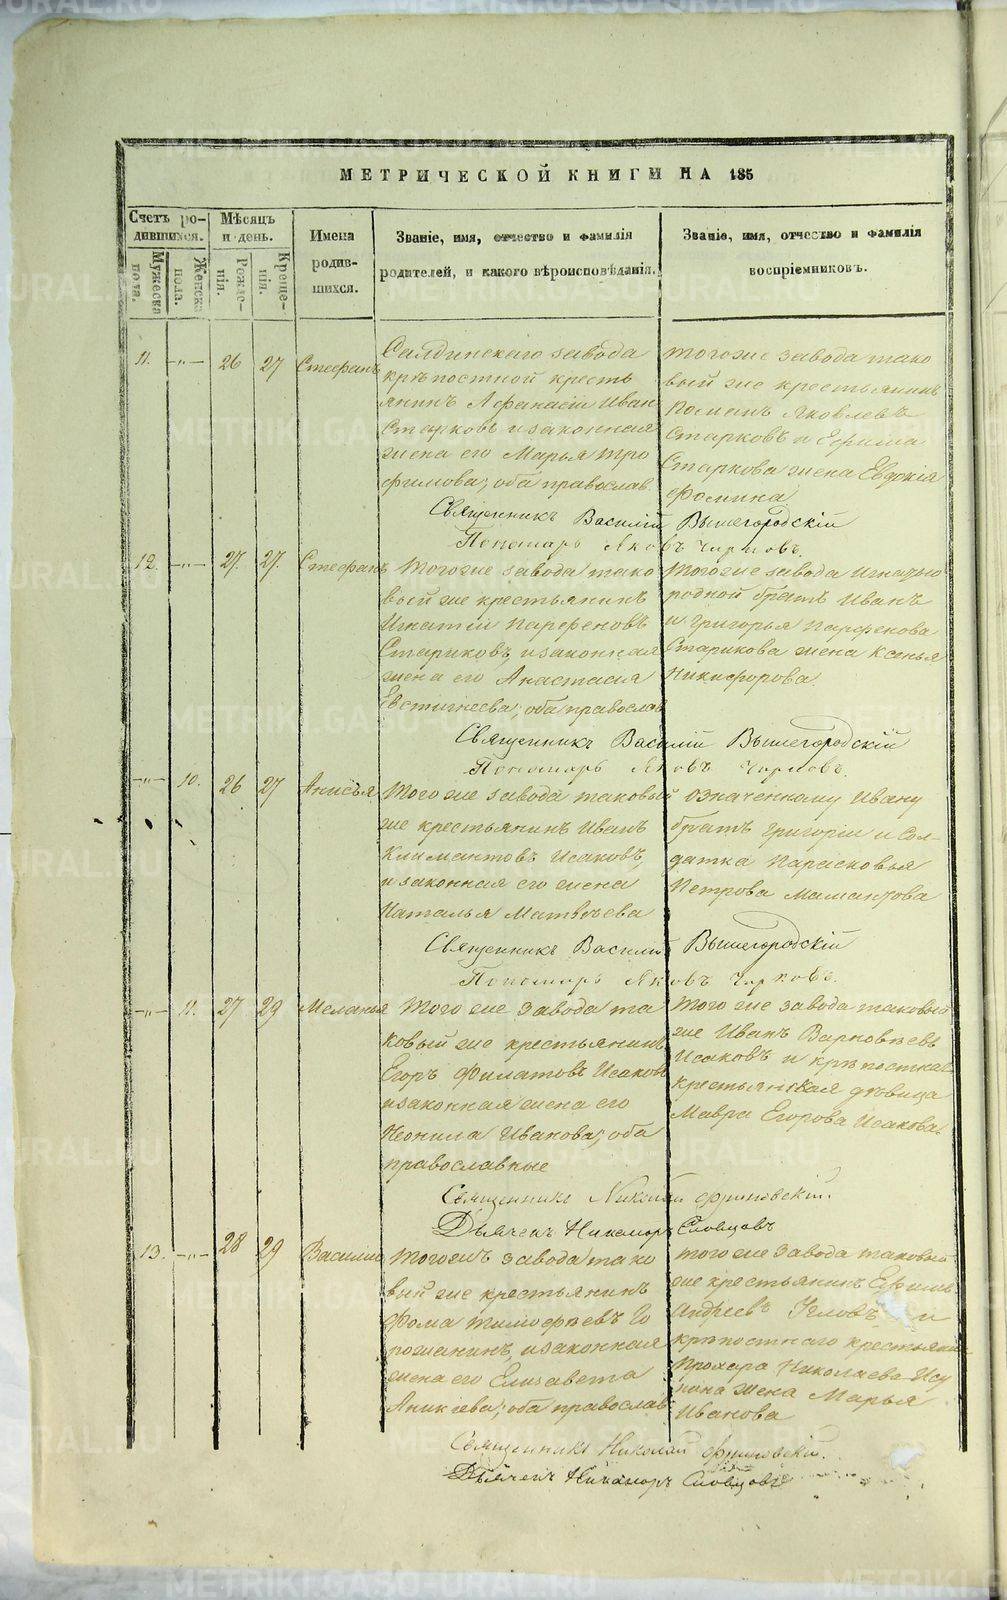 МЕТРИЧЕСКОЙ КНИГИ НА 185
Счетъ ро-
дившихся.
Мужеска
пола.
Женска
пола.
Мѣсяцъ
и день.
Рожде-
нія.
Креще-
нія.
Имена
родив-
шихся.
Званіе, имя, отчество и фамилія
родителей, и какого вѣроисповѣданія.
Званіе, имя, отчество и фамилія
воспріемниковъ.
11. -"- 26 27 Стефанъ
Салдинскаго завода
крѣпостной кресть
янинъ Афанасій Иван
Старковъ и законная
жена его Марья Тро
фимова; оба православ.
тогоже завода тако
вый же крестьянинъ
Яковлевъ
Старковъ и Ефима
Старкова жена Евдокія
Фомина
Священникъ Василій Вышегородскій
Пономарь Яковъ
12. -"- 27. 27. Стефанъ
Тогоже завода тако
вый же крестьянинъ
Игнатій Парфеновъ
Стариковъ, и законная
жена его Анастасія
Евстигнеева; оба православ
Тогоже завода Игнатью
родной братъ Иванъ
и Григорья Парфенова
Старикова жена Ксенья
Никифорова
Священникъ Василій Вышегородскій
Пономарь Яковъ
-"- 10. 26 27 Анисья
Того же завода таковый
же крестьянинъ Иванъ
Климантовъ Исаковъ,
и законная его жена
Наталья Матвѣева
означенному Ивану
братъ Григорій и Сол-
датка Парасковья
Петрова Мамантова
Священникъ Василій Вышегородскій
Пономарь Яковъ
-"- 11. 27 29 Меланья
Того же завода та
ковый же крестьянинъ
Егоръ Филатовъ Исаковъ
и законная жена его
Неонила Иванова; оба
православные
Того же завода таковый
же Иванъ
Исаковъ и крѣпостная
крестьянская дѣвица
Мавра Егорова Исакова.
Священникъ Николай Фриновскій.
Дьячекъ Никаноръ Словцовъ
13. -"- 28 29 Василій
Тогожъ завода тако
вый же крестьянинъ
Фома Тимофѣевъ Го
рожанинъ, и законная
жена его Елизавета
Аникіева; оба православ
того же завода таковый
же крестьянинъ Ефимъ
Андреевъ Угловъ, и
крѣпостнаго крестьянина
Прохара Николаева Ису
пина жена Марья
Иванова
Священникъ Николай Фриновскій.
Дьячекъ Никаноръ Словцовъ